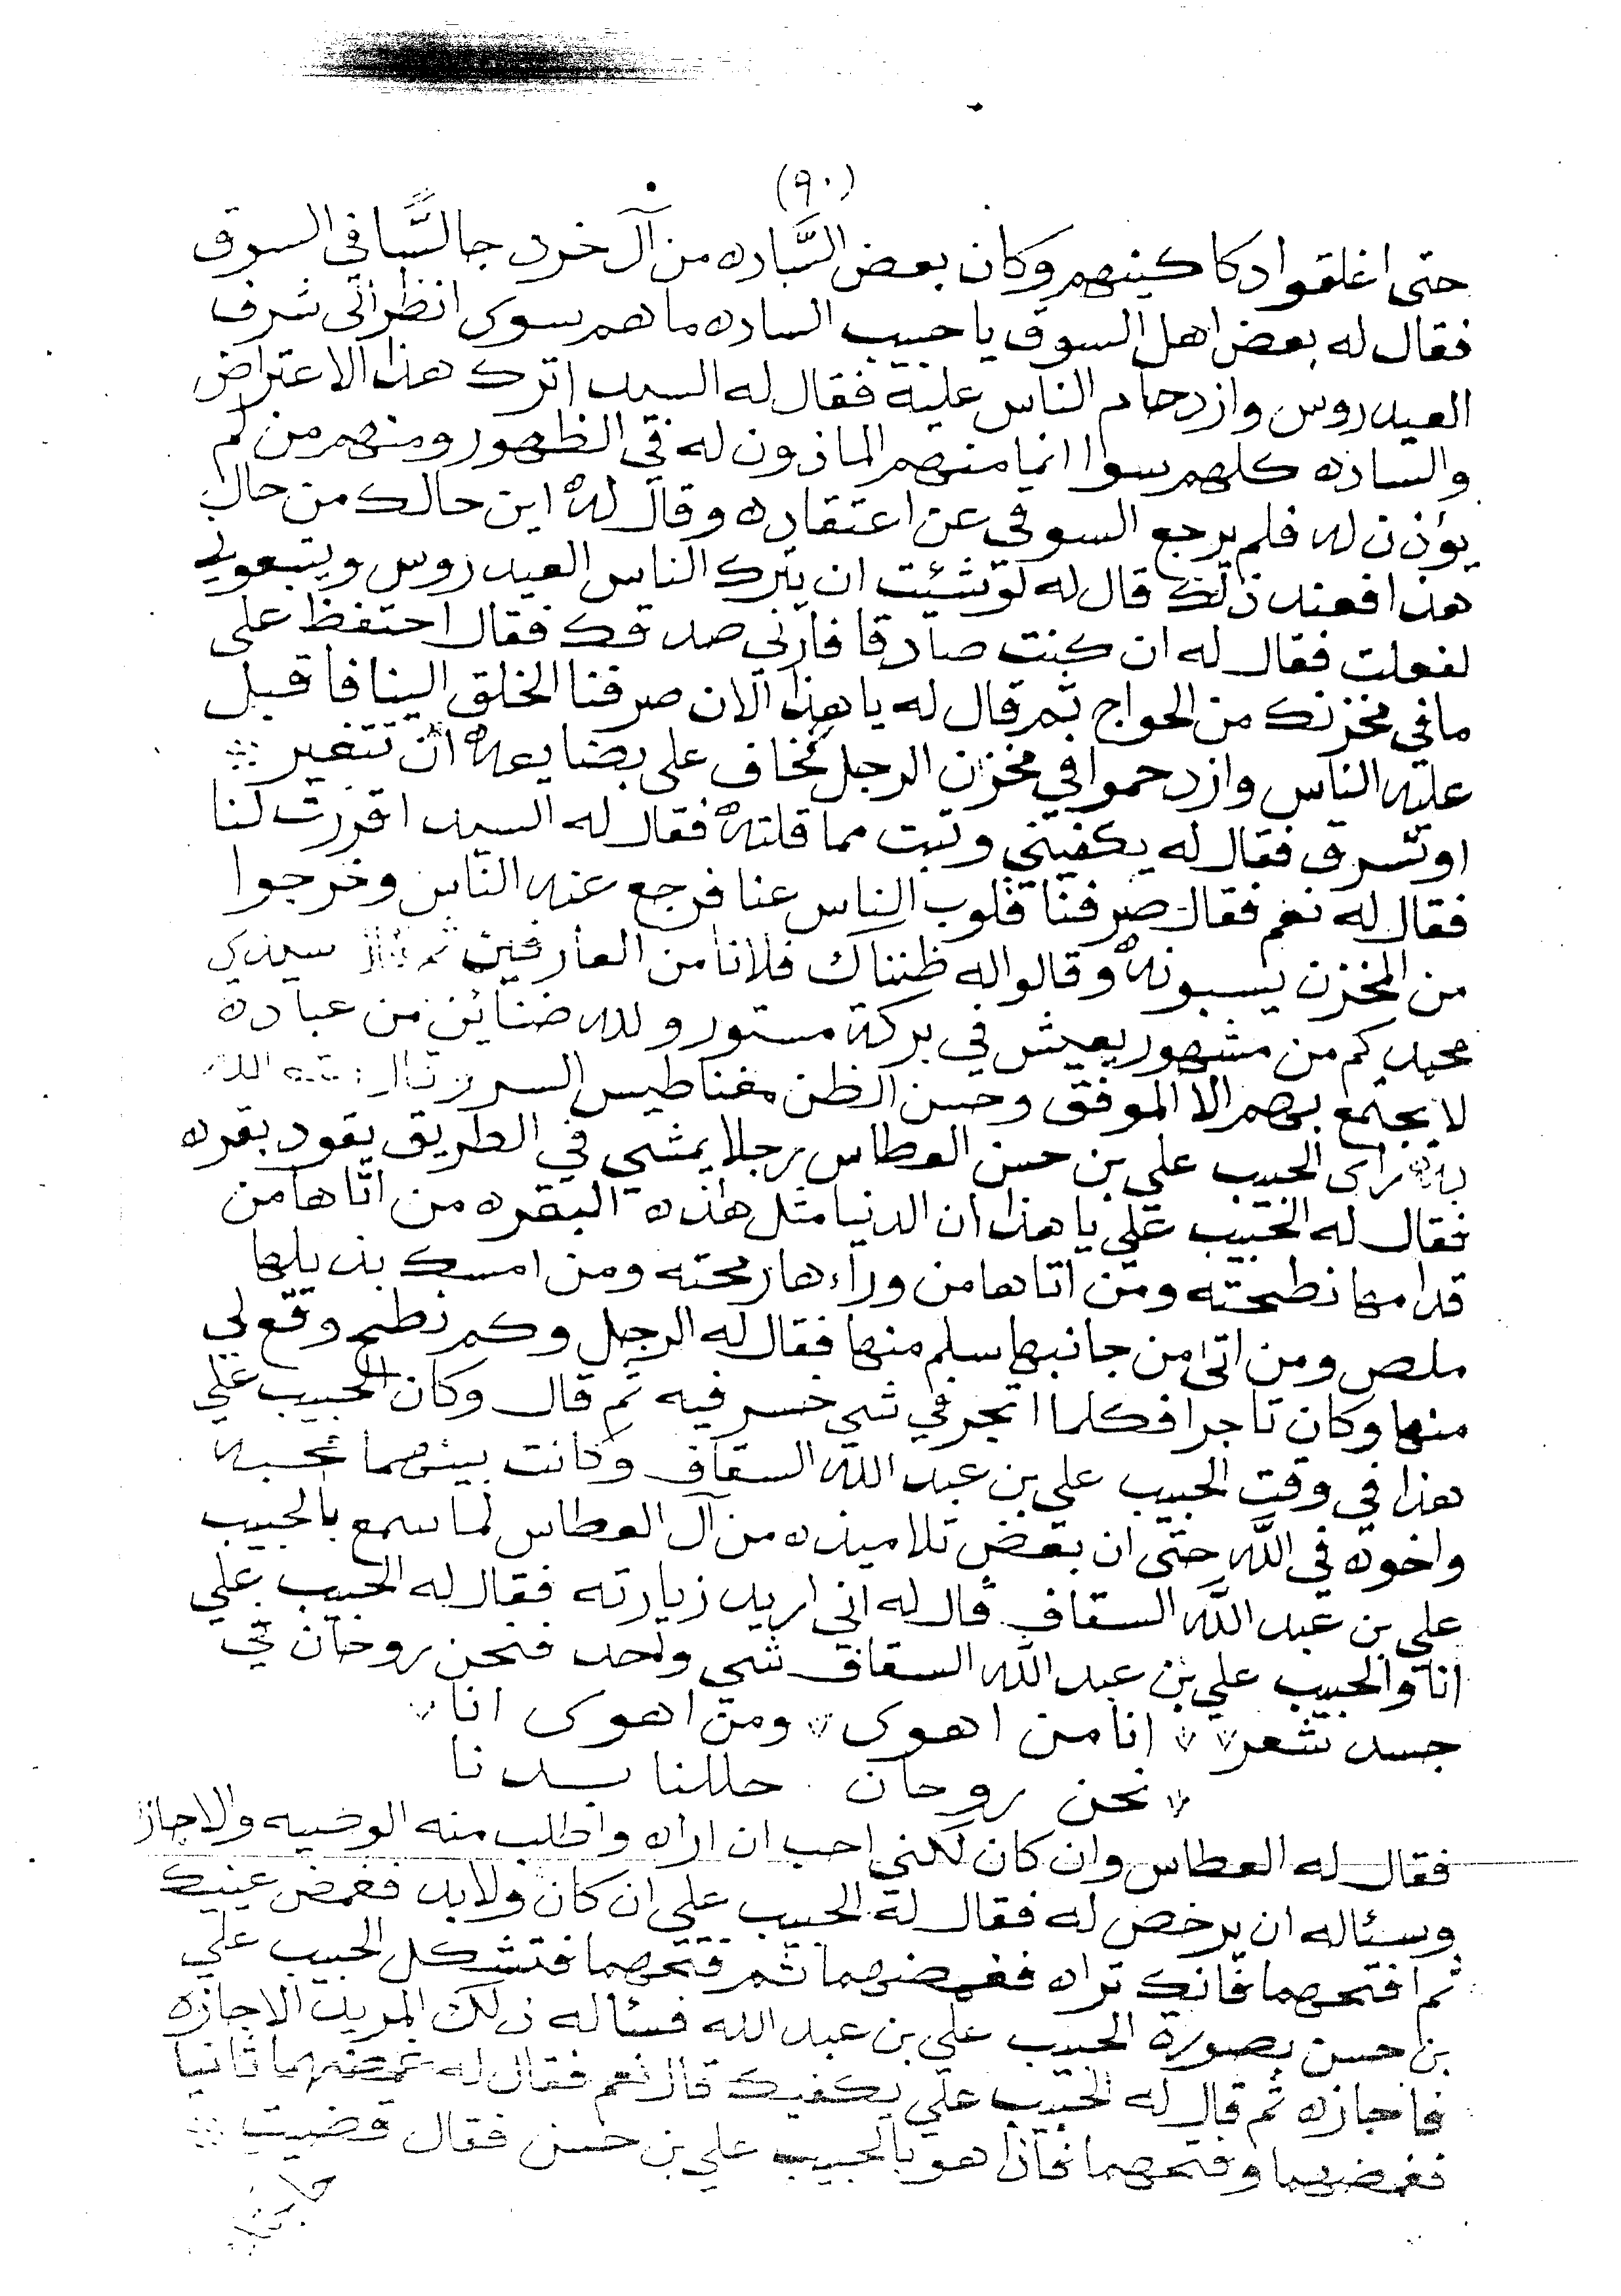 (٩٠)
حتى اغلقوا دكاكينهم وكان بعض السَّاده من آل خرد جالسًا في السوق
فقال له بعض اهل السوق يا حبيب الساده ما هم سوى انظر الى شرف
العيدروس وازدحام الناس عليه فقال له السيد اترك هذا الاعتراض
والساده كلهم سوا انما منهم الماذون له في الظهور ومنهم من لم
يؤذن له فلم يرجع السوقي عن اعتقاده وقال له اين حالك من حال
هذا فعند ذلك قال له لو شئت ان يترك الناس العيدروس ويتبعوني
لفعلت فقال له ان كنت صادقا فارني صدقك فقال احتفظ على
ما في مخزنك من الحواج ثم قال له يا هذا الان صرفنا الخلق الينا فاقبل
عليه الناس وازدحموا في مخزن الرجل فخاف على بضايعه ان تتغير
او تسرق فقال له يكفيني وتبت مما قلته فقال له السيد اقررت لنا
فقال له نعم فقال صرفنا قلوب الناس عنا فرجع عنه الناس وخرجوا
من المخزن يسبونه وقالوا له ظنناك فلانا من العارفين ثم قال سيدي
محمد كم من مشهور يعيش في بركة مستور ولله ضنائن من عباده
لا يجتمع بهم الا الموفق وحسن الظن مغناطيس السر وقال نفع الله
به راى الحبيب علي بن حسن العطاس رجلا يمشي في الطريق يقود بقره
فقال له الحبيب علي يا هذا ان الدنيا مثل هذه البقره من اتاها من
قدامها نطحته ومن اتاها من وراءها رمحته ومن امسك بذيلها
ملص ومن اتى من جانبها سلم منها فقال له الرجل وكم نطح وقع لي
منها وكان تاجرا فكلما اتجر في شي خسر فيه ثم قال وكان الحبيب علي
هذا في وقت الحبيب علي بن عبد الله السقاف وكانت بينهما محبه
واخوه في اللَّه حتى ان بعض تلاميذه من آل العطاس لما سمع بالحبيب
علي بن عبد اللَّه السقاف قال له اني اريد زيارته فقال له الحبيب علي
انا والحبيب علي بن عبد الله السقاف شي واحد فنحن روحان في
جسد شعر انا من اهوى ومن اهوى انا
نحن روحان حللنا بدنا
فقال له العطاس وان كان لكني احب ان اراه واطلب منه الوصيه والاجاز
وسئاله ان يرخص له فقال له الحبيب علي ان كان ولابد فغمض عينيك
ثم افتحهما فانك تراه فغمضهما ثم فتحهما فتشكل الحبيب علي
بن حسن بصورة الحبيب علي بن عبد الله فسئاله ذلك المريد الاجازه
فاجازه ثم قال له الحبيب علي يكفيك قال نعم فقال له غمضهما ثانيا
فغمضهما وفتحهما فاذا هو بالحبيب علي بن حسن فقال قضيت